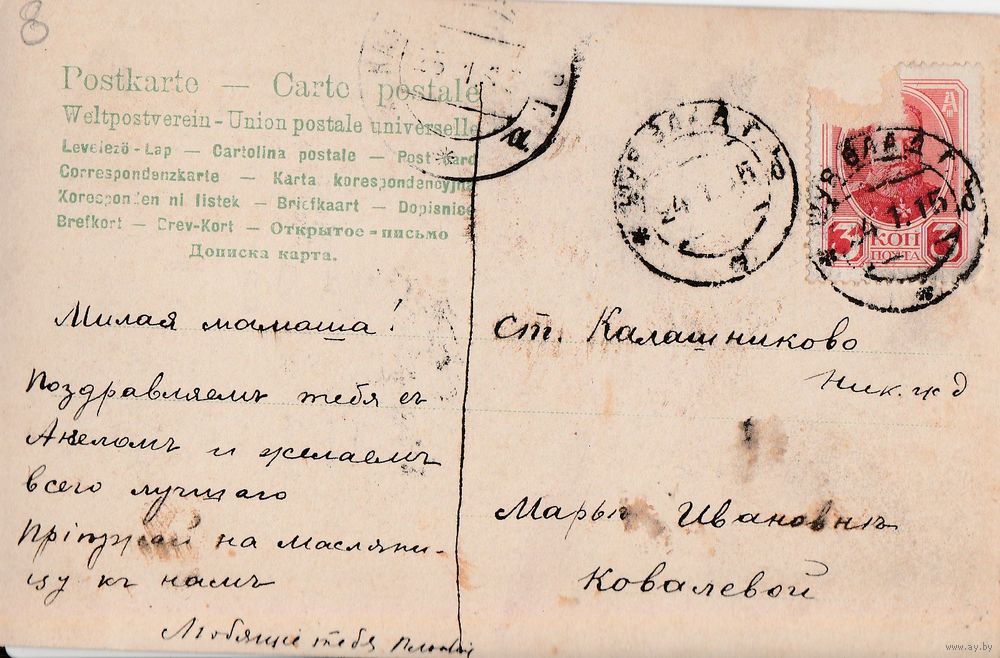 8
Postkarte — Carte postale
Weltpostverein - Union postale universelle
Levelező-Lap — Cartolina postale — Post card
Correspondenzkarte — Karta korespondencyjna
Koresponden ni listek — Briefkaart — Dopisnice
Brefkort — Brev-Kort — Открытое-письмо
Дописка карта.
24.1.15
24.1.15
3 КОП 3
ПОЧТА
Милая мамаша!
Поздравляемъ тебя съ
Ангеломъ и желаемъ
всего лучшаго
Пріѣзжай на масляни-
цу къ намъ
Любящіе тебя
ст. Калашниково
Ник. ж д
Марьѣ Ивановнѣ
Ковалевой
www.ay.by